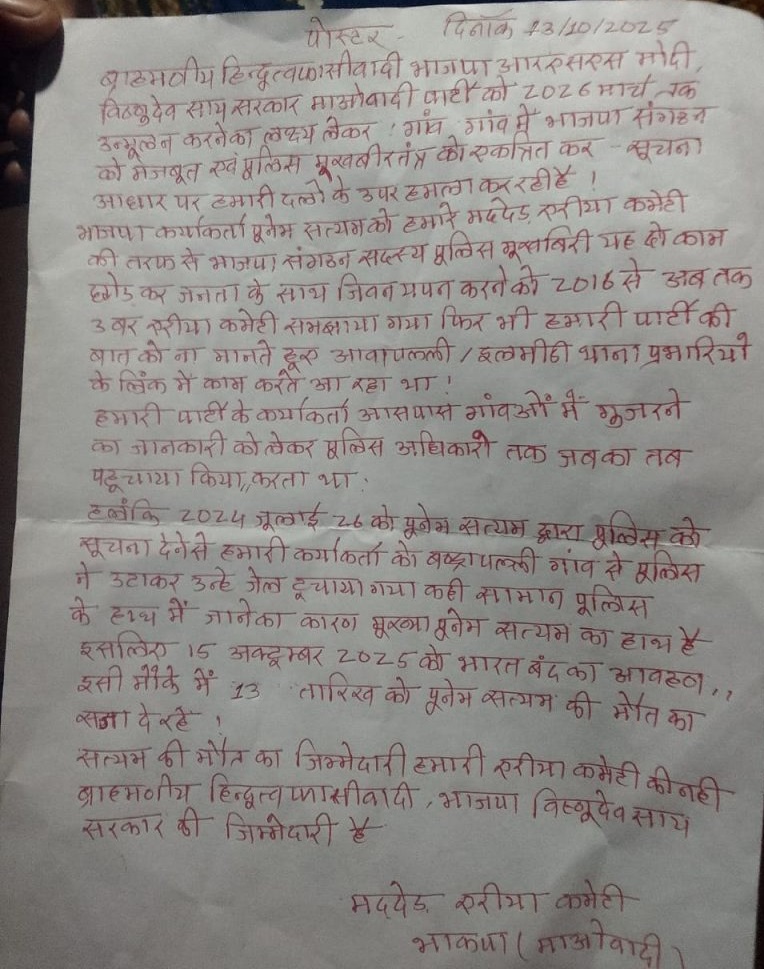 पोस्टर - दिनाँक 13/10/2025
ब्राहमणीय हिन्दुत्वफासीवादी भाजपा आरएसएस मोदी,
विष्णुदेव साय सरकार माओवादी पार्टी को 2026 मार्च तक
उन्मूलन करनेका लक्ष्य लेकर ! गांव गांव में भाजपा संगठन
को मजबूत एवं पुलिस मूखबीरतंत्र को एकत्रित कर - सूचना
आधार पर हमारी दलों के उपर हमला कर रही है !
भाजपा कर्याकर्ता पूनेम सत्यम को हमारे मददेड़ एरीया कमेटी
की तरफ से भाजपा संगठन सदस्य पुलिस मूखबिरी यह दो काम
छोड़ कर जनता के साथ जिवन यपन करने को 2016 से अब तक
3 बर एरीया कमेटी समझाया गया फिर भी हमारी पार्टी की
बात को ना मानते हूए आवापल्ली / इलमीडी थाना प्रभारियो
के लिंक में काम करते आ रहा था !
हमारी पार्टी के कर्याकर्ता आसपास गांवओं में गूजरने
का जानकारी को लेकर पुलिस अधिकारी तक जबका तब
पहूचाया किया,, करता था :
हलांकि 2024 जूलाई 26 को पूनेम सत्यम द्वारा पुलिस को
सूचना देनेसे हमारी कर्याकर्ता को गांव से पुलिस
ने उटाकर उन्हे जेल दूचाया गया कही सामान पूलिस
के हाथ में जानेका कारण पूनेम सत्यम का हाथ है
इसलिए 15 अक्टूम्बर 2025 को भारत बंद का आवहन,,
इसी मौके में 13 तारिख को पूनेम सत्यम की मौत का
सजा दे रहे !
सत्यम की मौत का जिम्मेदारी हमारी एरीया कमेटी की नही
ब्राहमणीय हिन्दुत्व फासीवादी, भाजपा विष्णूदेव साय
सरकार की जिम्मेदारी है
मददेड़ एरीया कमेटी
भाकपा (माओवादी)